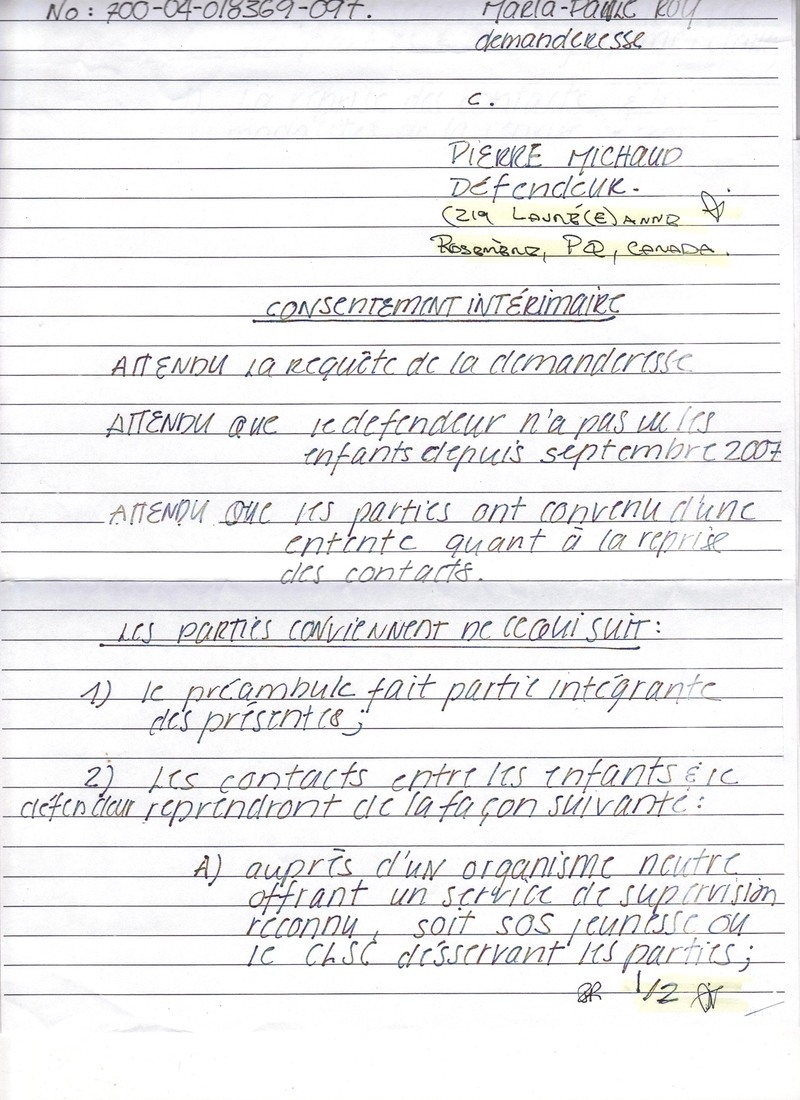 No: 700-04-018369-097.
MARIA-PAULE ROY
demanderesse
c.
PIERRE MICHAUD
Défendeur.
(219 LAURÉ(E)ANNE
ROSEMÈRE, PQ, CANADA.
CONSENTEMENT INTÉRIMAIRE
ATTENDU la requête de la demanderesse
ATTENDU que le défendeur n'a pas vu les
enfants depuis septembre 2007
ATTENDU que les parties ont convenu d'une
entente quant à la reprise
des contacts.
LES PARTIES CONVIENNENT DE CE QUI SUIT:
1) le préambule fait partie intégrante
des présentes;
2) Les contacts entre les enfants & le
défendeur reprendront de la façon suivante:
A) auprès d'un organisme neutre
offrant un service de supervision
reconnu, soit SOS jeunesse ou
le CLSC désservant les parties;
1/2